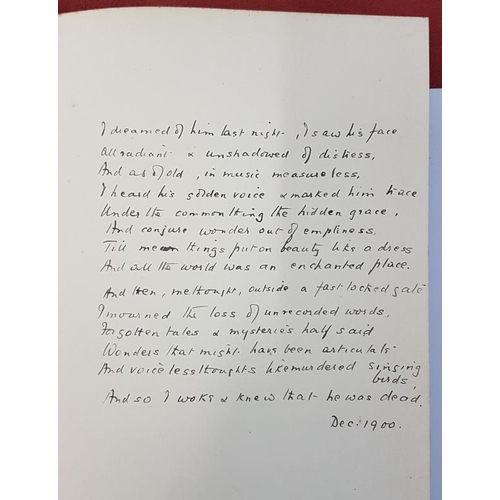 I dreamed of him last night, I saw his face
All radiant & unshadowed of distress,
And as of old, in music measureless,
I heard his golden voice & marked him trace
Under the common thing the hidden grace,
And conjure wonder out of emptiness,
Till mean things put on beauty like a dress
And all the world was an enchanted place.
And then, methought, outside a fast locked gate
I mourned the loss of unrecorded words,
Forgotten tales & mysteries half said
Wonders that might have been articulate
And voiceless thoughts like murdered singing
birds,
And so I woke & knew that he was dead.
Dec: 1900.